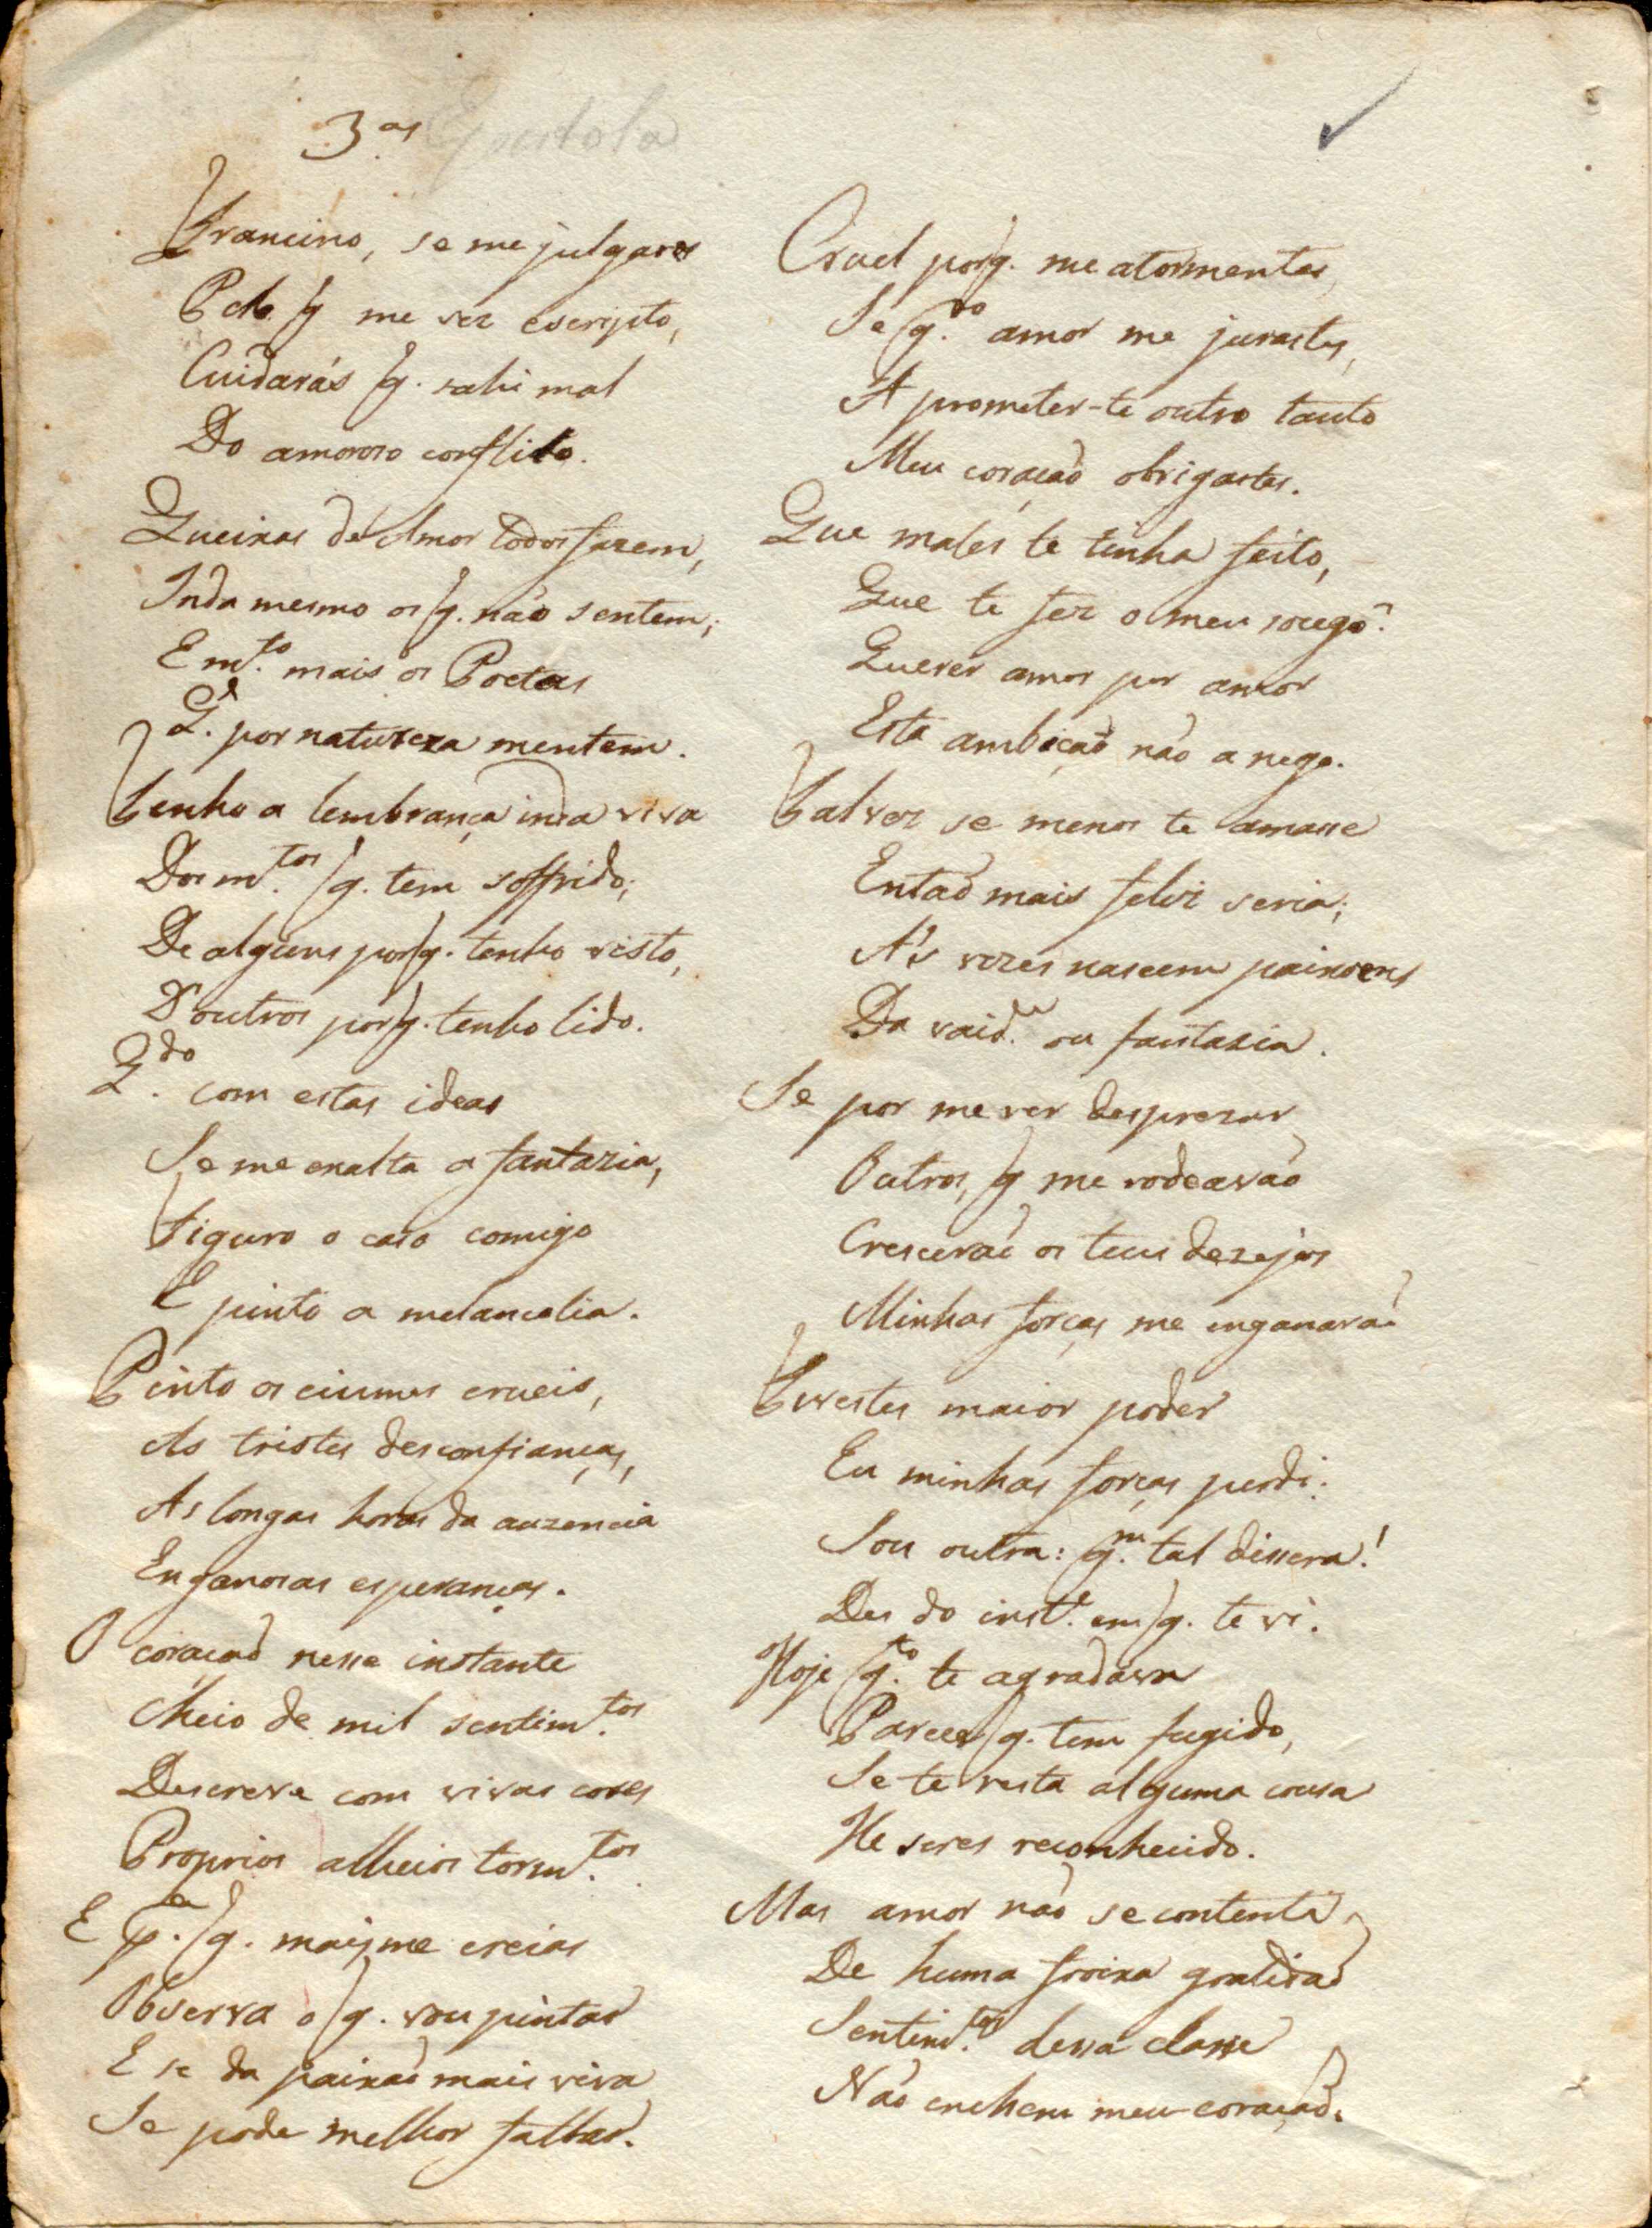 3.as Epistola
Francino, se me julgares
Pelo q̃ me vez escripto,
Cuidarás q̃. sahi mal
Do amoroso conflito.
Queixas de Amor todos fazem,
Inda mesmo os q̃. não sentem;
E m.to mais os Poetas
Q̃. por natureza mentem.
Tenho a lembrança inda viva
Dos m.tos q̃. tem soffrido;
De alguns porq̃. tenho visto,
D'outros porq̃. tenho lido.
Q.do com estas ideas
Se me exalta a fantazia,
Figuro o caso comigo
E pinto a melancolia.
Pinto os ciumes crueis,
As tristes desconfianças,
As longas horas da auzencia
Enganosas esperanças.
O coração nesse instante
Cheio de mil sentim.tos
Descreve com vivas cores
Proprios alheios torm.tos
E p.a q̃. mais me creias
Observa o q̃. vou pintar
E se da paixão mais viva
Se pode melhor fallar.
Cruel porq̃. me atormentas,
Se q.do amor me jurastes,
A prometer-te outro tanto
Meu coração obrigastes.
Que males te tinha feito,
Que te fez o meu socego?
Querer amor por amor
Esta ambição não a nego.
Talvez se menos te amasse
Então mais feliz seria;
A's vezes nascem paixoens
Da vaid.e ou fantazia.
Se por me ver desprezar
Outros, q̃ me rodeavão
Crescerão os teus dezejos
Minhas forças me enganarão
Tivestes maior poder
Eu minhas forças perdi:
Sou outra: q.m tal dissera!
Des do inst.e em q̃. te vi.
Hoje q.to te agradava
Parece q̃. tem fugido,
Se te resta alguma cousa
He seres reconhecido.
Mas amor não se contenta
De huma froixa gratidão
Sentim.tos dessa classe
Não enchem meu coração.